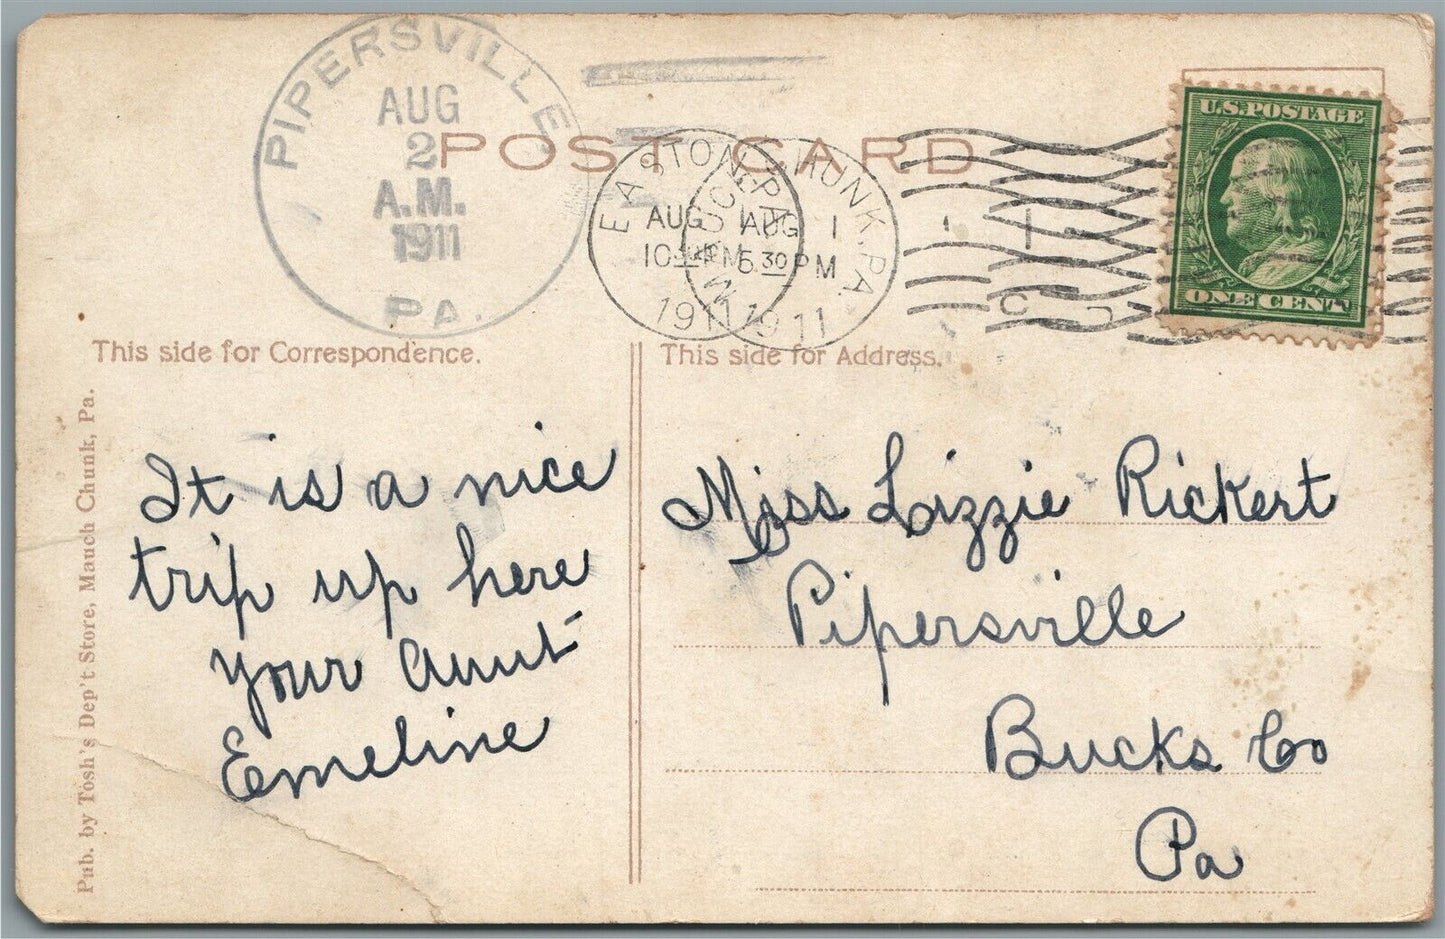 PIPERSVILLE
AUG
2
A.M.
1911
PA.
POST CARD
EASTON, PA.
AUG 1
10 PM
1911
MAUCH CHUNK, PA.
AUG 1
5 30 PM
1911
U.S. POSTAGE
ONE CENT
This side for Correspondence.
This side for Address.
Pub. by Tosh's Dep't Store, Mauch Chunk, Pa.
It is a nice
trip up here
your Aunt
Emeline
Miss Lizzie Rickert
Pipersville
Bucks Co
Pa